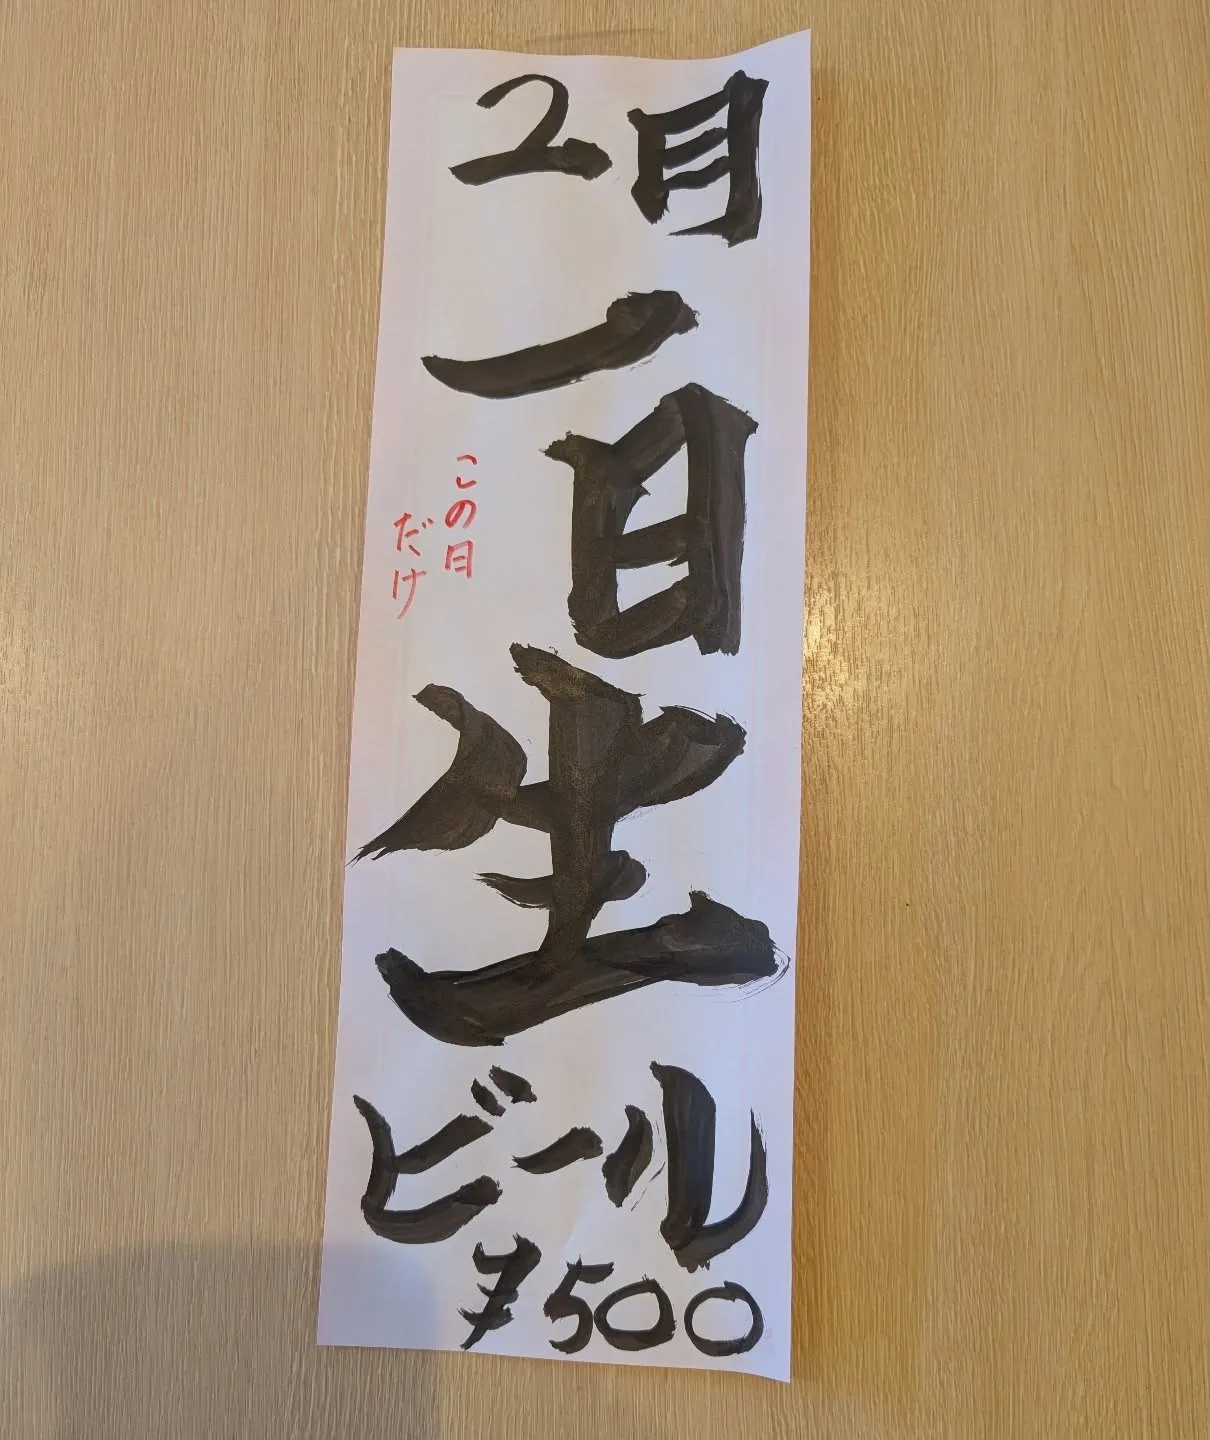 2月
一日
生
ビール
¥500
この日
だけ